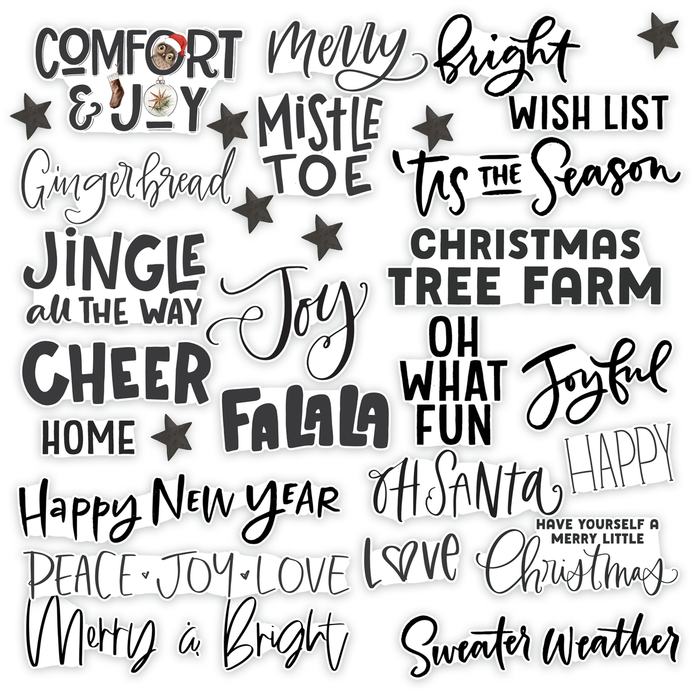 COMFORT
& JOY
Merry
bright
WISH LIST
MiSTLE
TOE
'tis THE Season
Gingerbread
JiNGLE
all THE WAY
Joy
CHRISTMAS
TREE FARM
CHEER
OH
WHAT
FUN
Joyful
HOME
FALALA
HAPPY
OH SANTa
Happy New Year
HAVE YOURSELF A
MERRY LITTLE
Christmas
PEACE · JOY · LOVE
Love
Merry & Bright
Sweater Weather